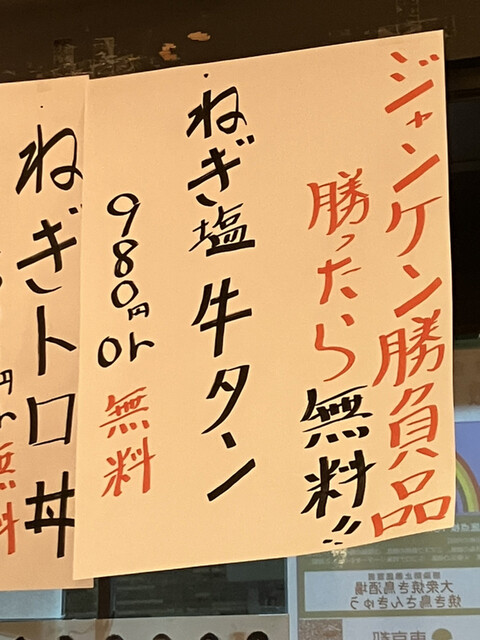 ジャンケン勝負品
勝ったら無料!!
ねぎ塩牛タン
980円or無料
ねぎトロ丼
円or無料
大衆焼き鳥酒場
焼き鳥さんきゅう